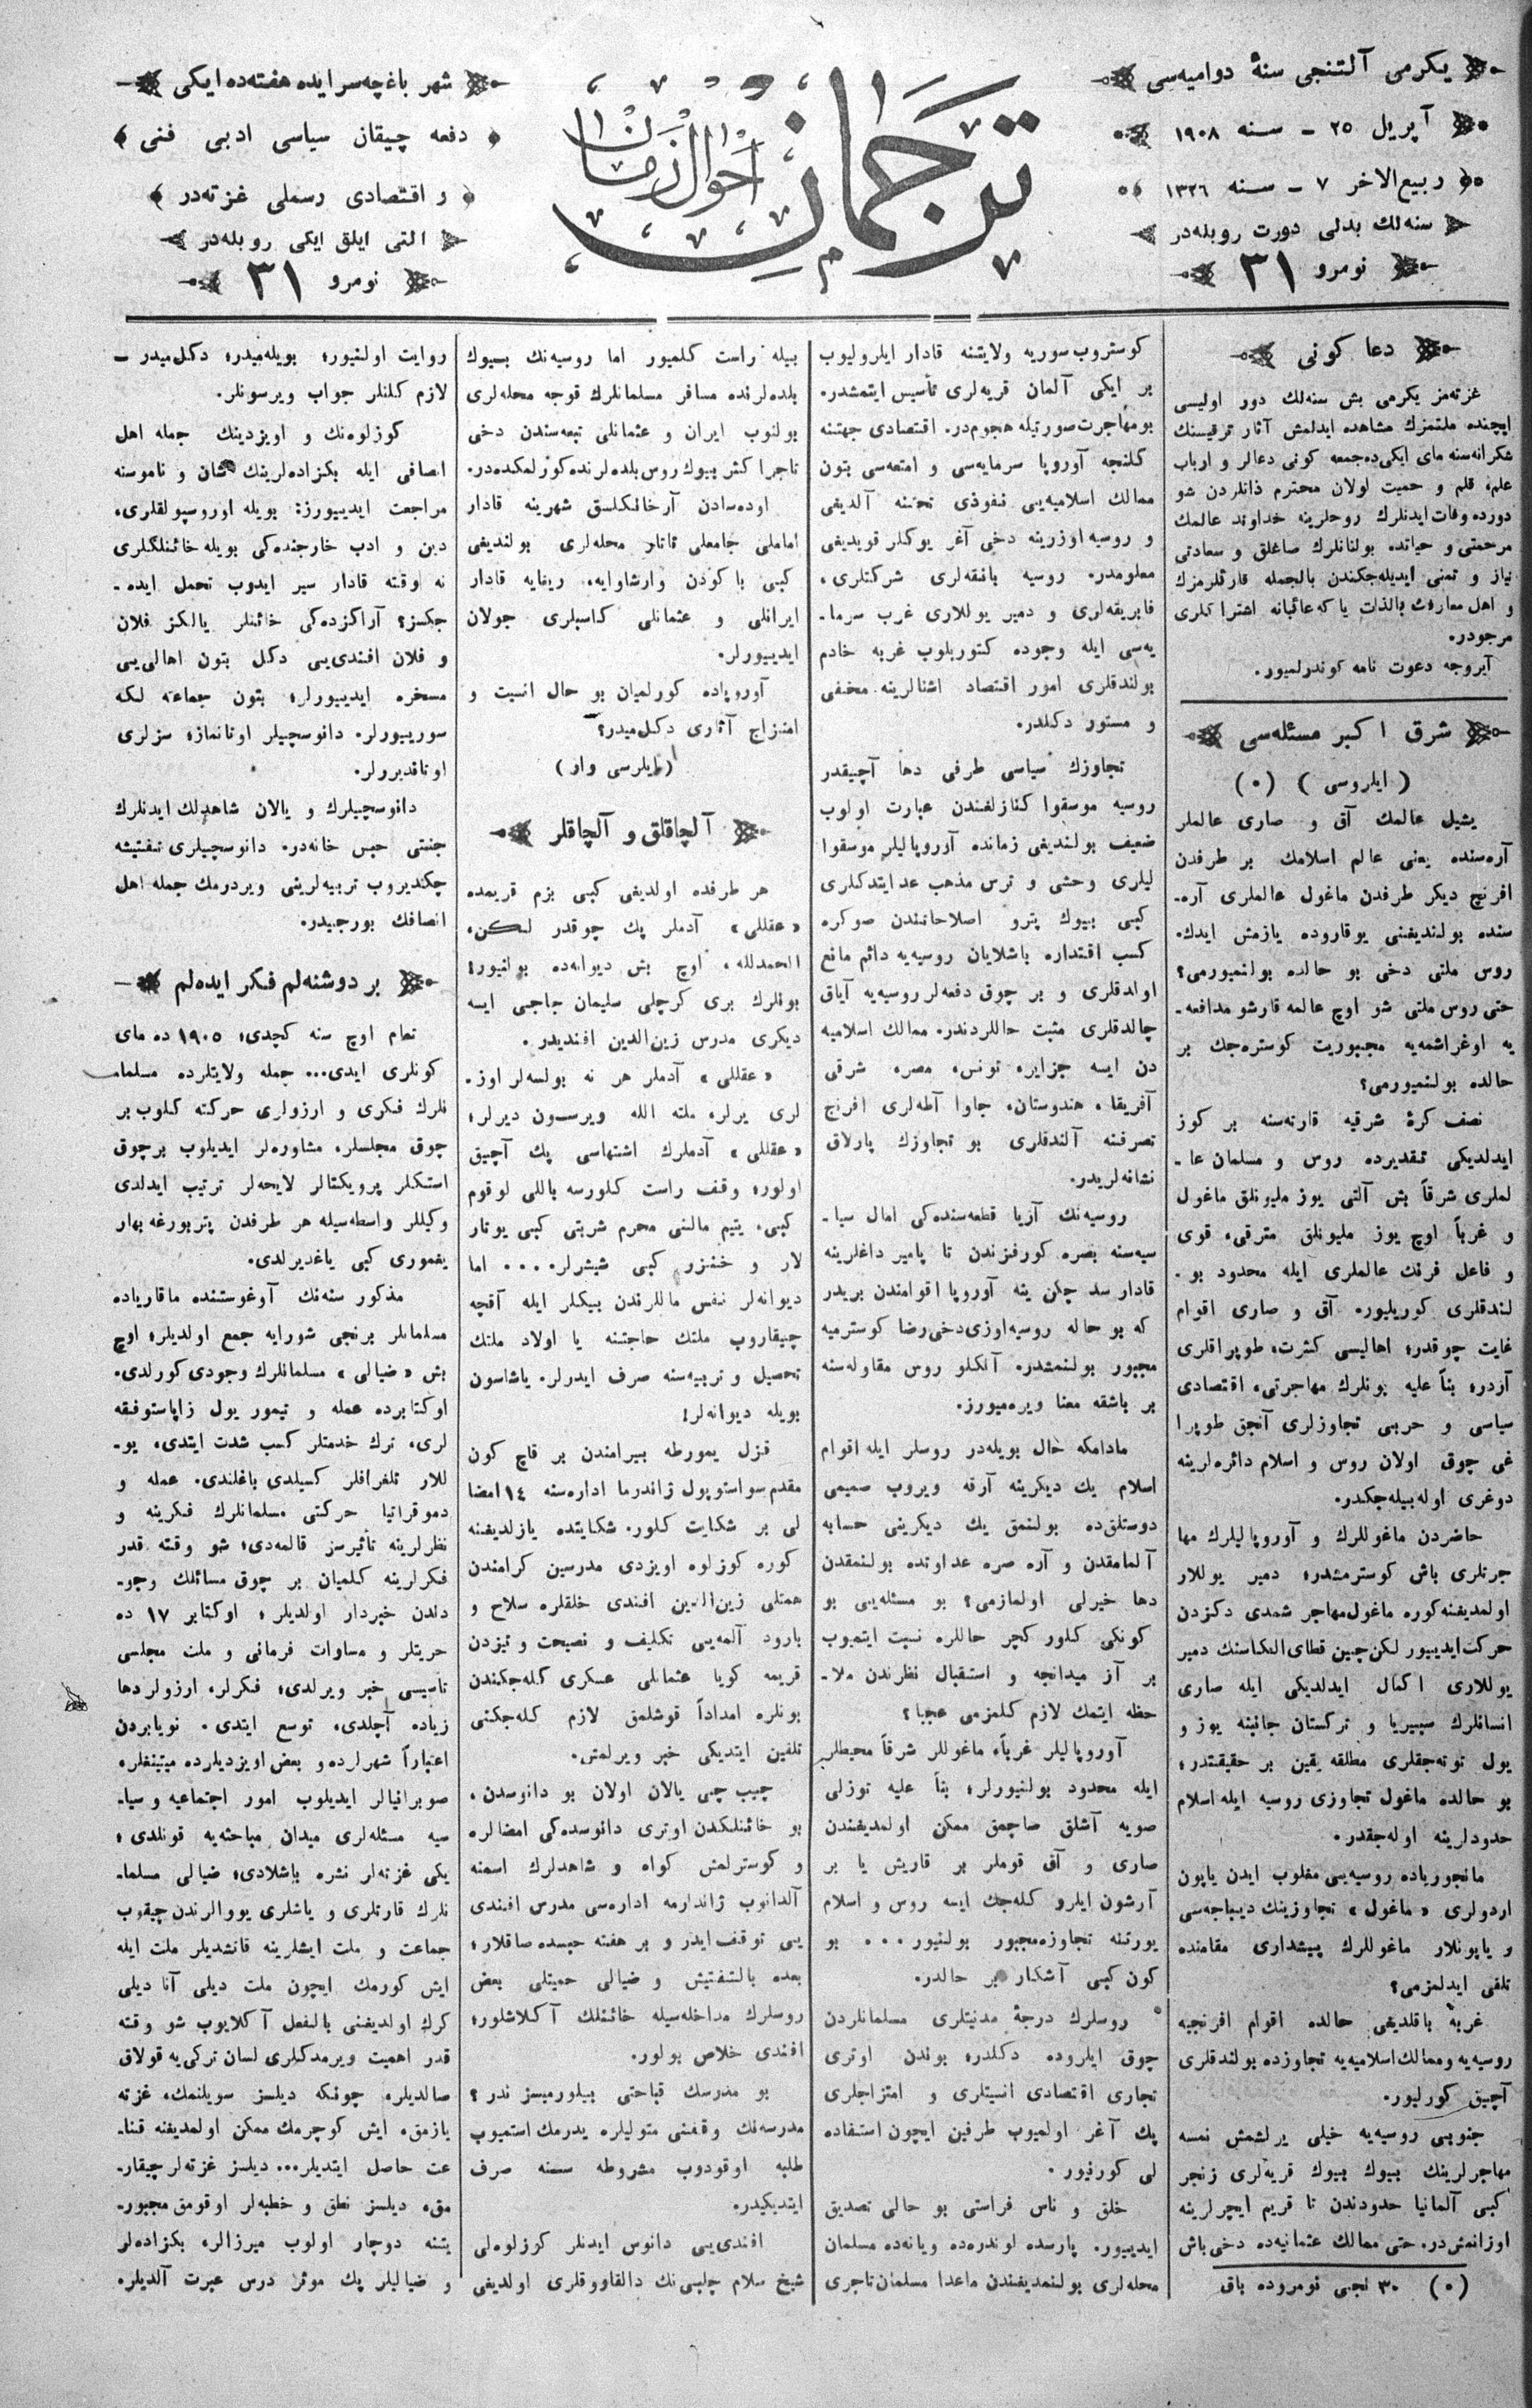 يكرمى آلتنجى سنۀ دواميه‌سى
آپريل ٢٥ – سنه ١٩٠٨
ربيع‌الاخر ٧ – سنه ١٣٢٦
سنه‌لك بدلى دورت روبله‌در
نومرو ٣١
ترجمان
احوال زمان
شهر باغچه‌سرايده هفته‌ده ايكى
دفعه چيقان سياسى ادبى فنى
و اقتصادى رسملى غزته‌در
التى ايلق ايكى روبله‌در
نومرو ٣١
دعا كونى
غزته‌مز يكرمى بش سنه‌لك دور اوليسى
ايچنده ملتمزك مشاهده ايدلمش آثار ترقيسنك
شكرانه‌سنه ماى ايكى‌ده جمعه كونى دعالر و ارباب
علم، قلم و حميت اولان محترم ذاتلردن شو
دورده وفات ايدنلرك روحلرينه خداوند عالمك
مرحمتى و حياتده بولنانلرك صاغلق و سعادتى
نياز و تمنى ايديله‌جكندن بالجمله قارئلرمزك
و اهل معارفك بالذات يا كه غائبانه اشتراكلرى
مرجودر.
آيروجه دعوت نامه كوندرلميور.
شرق اكبر مسئله‌سى
( ايلروسى ) (٠)
يشيل عالمك آق و صارى عالملر
آره‌سنده يعنى عالم اسلامك بر طرفدن
افرنج ديكر طرفدن ماغول عالملرى آره‌ـ
سنده بولنديغنى يوقاروده يازمش ايدك.
روس ملتى دخى بو حالده بولنميورمى؟
حتى روس ملتى شو اوچ عالمه قارشو مدافعه‌ـ
يه اوغراشمه‌يه مجبوريت كوستره‌جك بر
حالده بولنميورمى؟
نصف كرۀ شرقيه قارته‌سنه بر كوز
ايدلديكى تقديرده روس و مسلمان عا ـ
لملرى شرقاً بش آلتى يوز مليونلق ماغول
و غرباً اوچ يوز مليونلق مترقى، قوى
و فاعل فرنك عالملرى ايله محدود بو ـ
لندقلرى كوريليور. آق و صارى اقوام
غايت چوقدر؛ اهاليسى كثرت، طوپراقلرى
آزدر؛ بناً عليه بونلرك مهاجرتى، اقتصادى
سياسى و حربى تجاوزلرى آنجق طوپرا
غى چوق اولان روس و اسلام دائره‌لرينه
دوغرى اوله‌بيله‌جكدر.
حاضردن ماغوللرك و آوروپاليلرك مها
جرتلرى باش كوسترمشدر؛ دمير يوللار
اولمديغنه كوره ماغول مهاجر شمدى دكزدن
حركت ايدييور لكن چين قطاى الكاسنك دمير
يوللارى اكمال ايدلديكى ايله صارى
انسانلرك سيبيريا و تركستان جانبنه يوز و
يول توته‌جقلرى مطلقه يقين بر حقيقتدر؛
بو حالده ماغول تجاوزى روسيه ايله اسلام
حدودلرينه اوله‌جقدر.
مانجورياده روسيه‌يى مغلوب ايدن ياپون
اردولرى «ماغول» تجاوزينك ديباجه‌سى
و ياپونلار ماغوللرك پيشدارى مقامنده
تلقى ايدلمزمى؟
غربه باقلديغى حالده اقوام افرنجيه
روسيه‌يه وممالك اسلاميه‌يه تجاوزده بولندقلرى
آچيق كورليور.
جنوبى روسيه‌يه خيلى يرلشمش نمسه
مهاجرلرينك بيوك بيوك قريه‌لرى زنجر
كبى آلمانيا حدودندن تا قريم ايچرلرينه
اوزانمش‌در. حتى ممالك عثمانيه‌ده دخى باش
(٠) ٣٠ نجى نومروده باق
كوستروب سوريه ولايتنه قادار ايلروليوب
بر ايكى آلمان قريه‌لرى تأسيس ايتمشدر.
بو مهاجرت صورتيله هجوم‌در. اقتصادى جهتنه
كلنجه آوروپا سرمايه‌سى و امتعه‌سى بتون
ممالك اسلاميه‌يى نفوذى تحتنه آلديغى
و روسيه اوزرينه دخى آغر يوكلر قويديغى
معلومدر. روسيه بانقه‌لرى شركتلرى،
فابريقه‌لرى و دمير يوللارى غرب سرماـ
يه‌سى ايله وجوده كتوريلوب غربه خادم
بولندقلرى امور اقتصاد اشنالرينه مخفى
و مستور دكلدر.
تجاوزك سياسى طرفى دها آچيقدر
روسيه موسقوا كنازلغندن عبارت اولوب
ضعيف بولنديغى زمانده آوروپاليلر موسقوا
ليلرى وحشى و ترس مذهب عد ايتدكلرى
كبى بيوك پترو اصلاحاتندن صوكره
كسب اقتداره باشلايان روسيه‌يه دائم مانع
اولدقلرى و بر چوق دفعه‌لر روسيه‌يه آياق
چالدقلرى مثبت حاللردندر. ممالك اسلاميه
دن ايسه جزاير، تونس، مصر، شرقى
آفريقا، هندوستان، جاوا آطه‌لرى افرنج
تصرفنه آلندقلرى بو تجاوزك پارلاق
نشانه‌لريدر.
روسيه‌نك آزيا قطعه‌سنده‌كى امال سياـ
سيه‌سنه بصره كورفزندن تا پامير داغلرينه
قادار سد چكن ينه آوروپا اقوامندن بريدر
كه بو حاله روسيه اوزى‌دخى رضا كوسترميه
مجبور بولنمشدر. آنكلو روس مقاوله‌سنه
بر باشقه معنا ويره‌ميورز.
مادامكه حال بويله‌در روسلر ايله اقوام
اسلام يك ديكرينه آرقه ويروب صميمى
دوستلق‌ده بولنمق يك ديكرينى حسابه
آلمامقدن و آره صره عداوتده بولنمقدن
دها خيرلى اولمازمى؟ بو مسئله‌يى بو
كونكى كلور كچر حاللره نسبت ايتميوب
بر آز ميدانجه و استقبال نظرندن ملا ـ
حظه ايتمك لازم كلمزمى عجبا؟
آوروپاليلر غرباً، ماغوللر شرقاً محيطلر
ايله محدود بولنيورلر؛ بناً عليه توزلى
صويه آشلق صاچمق ممكن اولمديغندن
صارى و آق قوملر بر قاريش يا بر
آرشون ايلرو كله‌جك ايسه روس و اسلام
يورتنه تجاوزه مجبور بولنيور... بو
كون كبى آشكار بر حالدر.
روسلرك درجۀ مدنيتلرى مسلمانلردن
چوق ايلروده دكلدر؛ بوندن اوترى
تجارى اقتصادى انسيتلرى و امتزاجلرى
پك آغر اولميوب طرفين ايچون استفاده
لى كورنيور.
خلق و ناس فراستى بو حالى تصديق
ايدييور. پارسده لوندره‌ده ويانه‌ده مسلمان
محله‌لرى بولنمديغندن ماعدا مسلمان تاجرى
بيله راست كلميور اما روسيه‌نك بيوك
بلده‌لرنده مسافر مسلمانلرك قوجه محله‌لرى
بولنوب ايران و عثمانلى تبعه‌سندن دخى
تاجر اكثر بيوك روس بلده‌لرنده كورلمكده‌در.
اوده‌سادن آرخانكلسق شهرينه قادار
اماملى جامعلى تاتار محله‌لرى بولنديغى
كبى باكودن وارشاوايه، ريغايه قادار
ايرانلى و عثمانلى كاسبلرى جولان
ايدييورلر.
آوروپاده كورلميان بو حال انسيت و
امتزاج آثارى دكل‌ميدر؟
(ايلرسى وار)
آلچاقلق و آلچاقلر
هر طرفده اولديغى كبى بزم قريمده
«عقللى» آدملر پك چوقدر لكن،
الحمدلله، اوچ بش ديوانه‌ده بولنيور؛
بونلرك برى كرچلى سليمان حاجى ايسه
ديكرى مدرس زين‌الدين افنديدر.
«عقللى» آدملر هر نه بولسه‌لر اوزـ
لرى يرلر، ملته الله ويرسون ديرلر؛
«عقللى» آدملرك اشتهاسى پك آچيق
اولور؛ وقف راست كلورسه باللى لوقوم
كبى، يتيم مالنى محرم شربتى كبى يوتار
لار و خنزر كبى شيشرلر.... اما
ديوانه‌لر نفس ماللرندن بيكلر ايله آقچه
چيقاروب ملتك حاجتنه يا اولاد ملتك
تحصيل و تربيه‌سنه صرف ايدرلر. ياشاسون
بويله ديوانه‌لر!
قزل يمورطه بيرامندن بر قاچ كون
مقدم سواستوپول ژاندرما اداره‌سنه ١٤ امضا
لى بر شكايت كلور. شكايتده يازلديغنه
كوره كوزلوه اويزدى مدرسين كرامندن
همتلى زين‌الدين افندى خلقلره سلاح و
بارود آلمه‌يى تكليف و نصيحت و تيزدن
قريمه كويا عثمانلى عسكرى كله‌جكندن
بونلره امداداً قوشلمق لازم كله‌جكنى
تلقين ايتديكى خبر ويرلمش.
چيب چى يالان اولان بو دانوسدن،
بو خائنلكدن اوترى دانوسده‌كى امضالره
و كوسترلمش كواه و شاهدلرك اسمنه
آلدانوب ژاندارمه اداره‌سى مدرس افندى
يى توقف ايدر و بر هفته حبسده صاقلار؛
بعده بالتفتيش و ضيالى حميتلى بعض
روسلرك مداخله‌سيله خائنلك آكلاشلور؛
افندى خلاص بولور.
بو مدرسك قباحتى بيلورميسز ندر؟
مدرسه‌نك وقفنى متوليلره يدرمك استميوب
طلبه اوقودوب مشروطه سنه صرف
ايتديكيدر.
افندى‌يى دانوس ايدنلر كوزلوه‌لى
شيخ سلام چلبى‌نك دالقاووقلرى اولديغى
روايت اولنيور؛ بويله‌ميدر؛ دكل‌ميدر ـ
لازم كلنلر جواب ويرسونلر.
كوزلوه‌نك و اويزدينك جمله اهل
انصافى ايله بكزاده‌لرينك شان و ناموسنه
مراجعت ايدييورز: بويله اوروسپولقلرى،
دين و ادب خارجنده‌كى بويله خائنلكلرى
نه وقته قادار سير ايدوب تحمل ايده ـ
جكسز؟ آراكزده‌كى خائنلر يالكز فلان
و فلان افندى‌يى دكل بتون اهالى‌يى
مسخره ايدييورلر؛ بتون جماعته لكه
سورييورلر. دانوسچيلر اوتانماز؛ سزلرى
اوتاقديرولر.
دانوسچيلرك و يالان شاهدلك ايدنلرك
جنتى حبس خانه‌در. دانوسچيلرى تفتيشه
چكديروب تربيه‌لرينى ويردرمك جمله اهل
انصافك بورجيدر.
بر دوشنه‌لم فكر ايده‌لم
تمام اوچ سنه كچدى؛ ١٩٠٥ ده ماى
كونلرى ايدى... جمله ولايتلرده مسلماـ
نلرك فكرى و ارزولرى حركته كلوب بر
چوق مجلسلر، مشاوره‌لر ايديلوب برچوق
استكلر پرويكتالر لايحه‌لر ترتيب ايدلدى
وكيللر واسطه‌سيله هر طرفدن پتربورغه بهار
يغمورى كبى ياغديرلدى.
مذكور سنه‌نك آوغوستنده ماقارياده
مسلمانلر برنجى شورايه جمع اولديلر؛ اوچ
بش «ضيالى» مسلمانلرك وجودى كورلدى.
اوكتابرده عمله و تيمور يول زاپاستوفقه
لرى، ترك خدمتلر كسب شدت ايتدى، يوـ
للار تلغرافلر كسيلدى باغلندى. عمله و
دموقراتيا حركتى مسلمانلرك فكرينه و
نظرلرينه تأثيرسز قالمه‌دى؛ شو وقته قدر
فكرلرينه كلميان بر چوق مسائلك وجوـ
دلدن خبردار اولديلر؛ اوكتابر ١٧ ده
حريتلر و مساوات فرمانى و ملت مجلسى
تاسيسى خبر ويرلدى؛ فكرلر، ارزولر دها
زياده آچلدى، توسع ايتدى. نويابردن
اعتباراً شهرلرده و بعض اويزديلرده ميتينغلر،
صوبرانيالر ايديلوب امور اجتماعيه و سياـ
سيه مسئله‌لرى ميدان مباحثه‌يه قونلدى؛
يكى غزته‌لر نشره باشلادى؛ ضيالى مسلماـ
نلرك قارتلرى و ياشلرى يووالرندن چيقوب
جماعت و ملت ايشلرينه قاتشديلر ملت ايله
ايش كورمك ايچون ملت ديلى آنا ديلى
كرك اولديغنى بالفعل آكلايوب شو وقته
قدر اهميت ويرمدكلرى لسان تركى‌يه قولاق
صالديلر، چونكه ديلسز سويلنمك، غزته
يازمق، ايش كوچرمك ممكن اولمديغنه قناـ
عت حاصل ايتديلر... ديلسز غزته‌لر چيقارـ
مق، ديلسز نطق و خطبه‌لر اوقومق مجبورـ
يتنه دوچار اولوب ميرزالر، بكزاده‌لر
و ضياليلر پك موثر درس عبرت آلديلر.